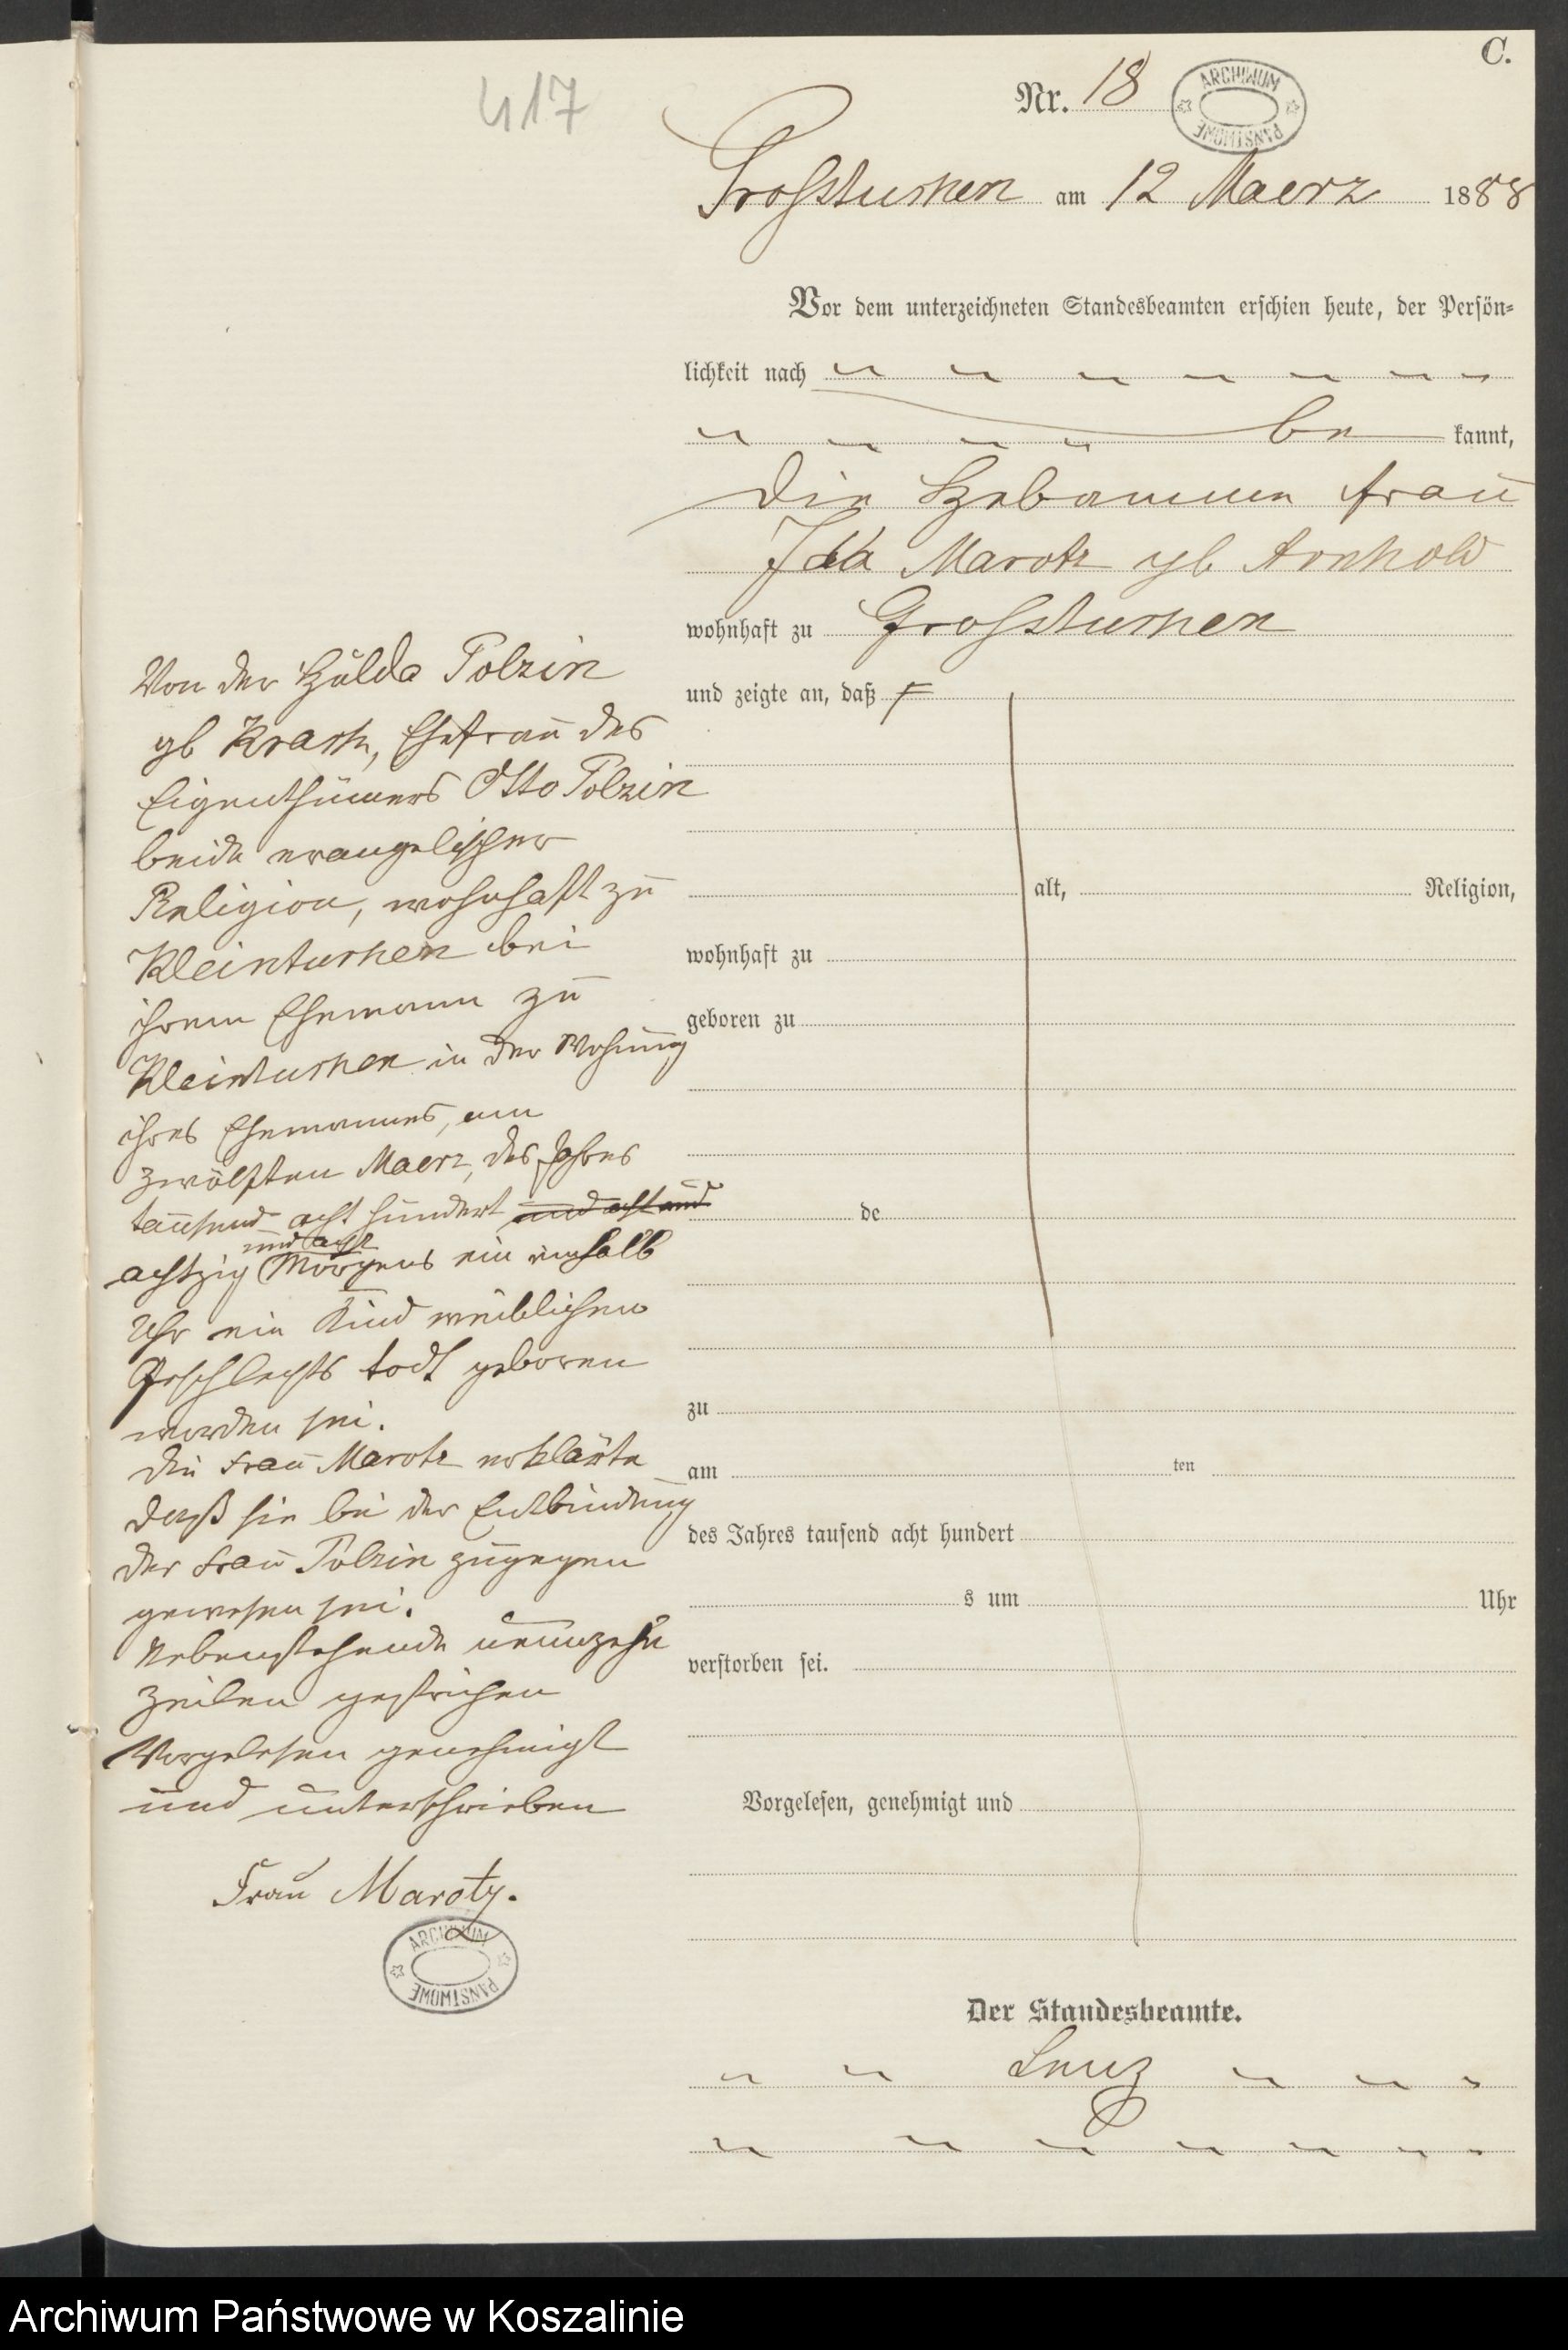 C.
417
Nr. 18
ARCHIWUM PAŃSTWOWE
Grossturhen am 12 Maerz 1888
Vor dem unterzeichneten Standesbeamten erschien heute, der Persön-
lichkeit nach
be kannt,
die Hebamme Frau
Ida Marotz gb Arnhold
wohnhaft zu Grossturhen
und zeigte an, daß
alt, Religion,
wohnhaft zu
geboren zu
de
zu
am ten
des Jahres tausend acht hundert
s um Uhr
verstorben sei.
Vorgelesen, genehmigt und
Von der Hulda Polzin
gb , Ehefrau des
Eigenthümers Otto Polzin
beide evangelischer
Religion, wohnhaft zu
Kleinturhen bei
ihrem Ehemann zu
Kleinturhen in der Wohnung
ihres Ehemannes, am
zwölften Maerz, des Jahres
tausend acht hundert und acht und
und acht
achtzig Morgens ein einhalb
Uhr ein Kind weiblichen
Geschlechts todt geboren
worden sei.
die Frau Marotz erklärte
daß sie bei der Entbindung
der Frau Polzin zugegen
gewesen sei.
Nebenstehende neunzehn
Zeilen gestrichen
Vorgelesen genehmigt
und unterschrieben
Frau Marotz.
ARCHIWUM PAŃSTWOWE
Der Standesbeamte.
Lenz
Archiwum Państwowe w Koszalinie